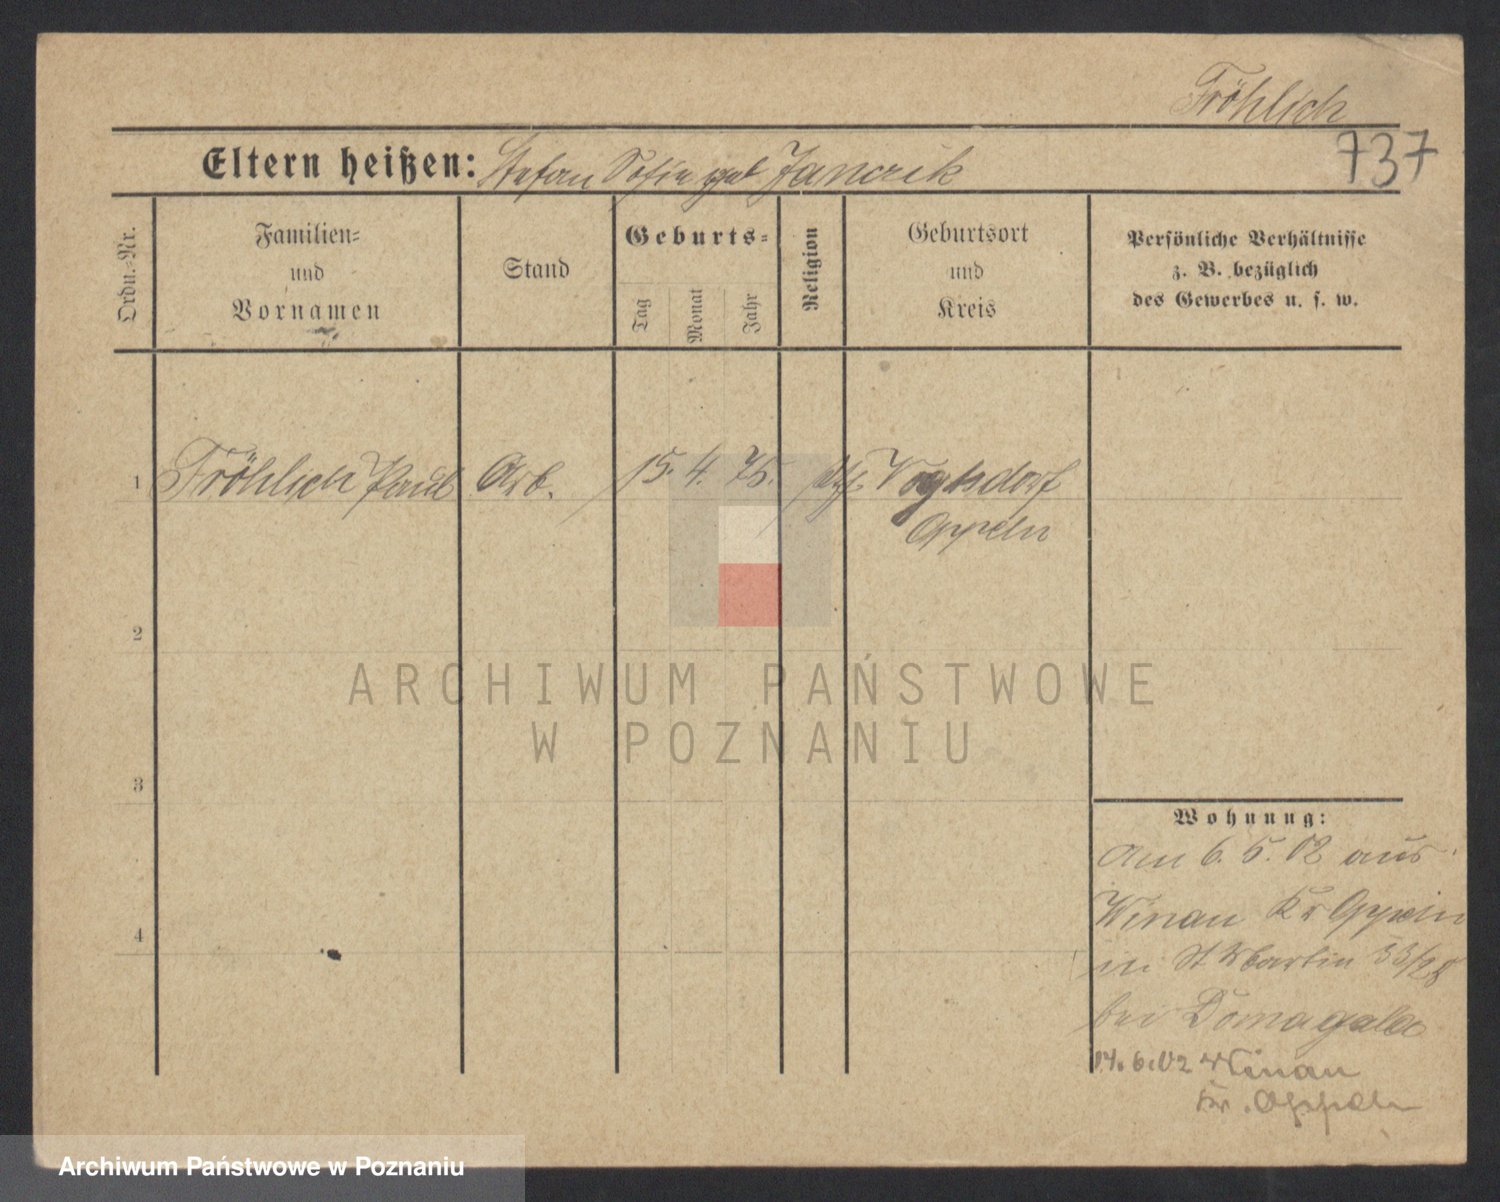 Fröhlich
737
Eltern heißen: Stefan Sofie geb Jancrik
Ordn.-Nr.
Familien-
und
Vornamen
Stand
Geburts-
Tag
Monat
Jahr
Religion
Geburtsort
und
Kreis
Persönliche Verhältnisse
z. B. bezüglich
des Gewerbes u. s. w.
1 Fröhlich Paul Arb. 15. 4. 75. Vogtsdorf
Oppeln
2
3
4
Wohnung:
Am 6. 5. 02 aus
Winau Kr Oppeln
in St Martin 33/28
bei Domagalla
14. 6. 02 Winau
Kr. Oppeln
ARCHIWUM PAŃSTWOWE
W POZNANIU
Archiwum Państwowe w Poznaniu